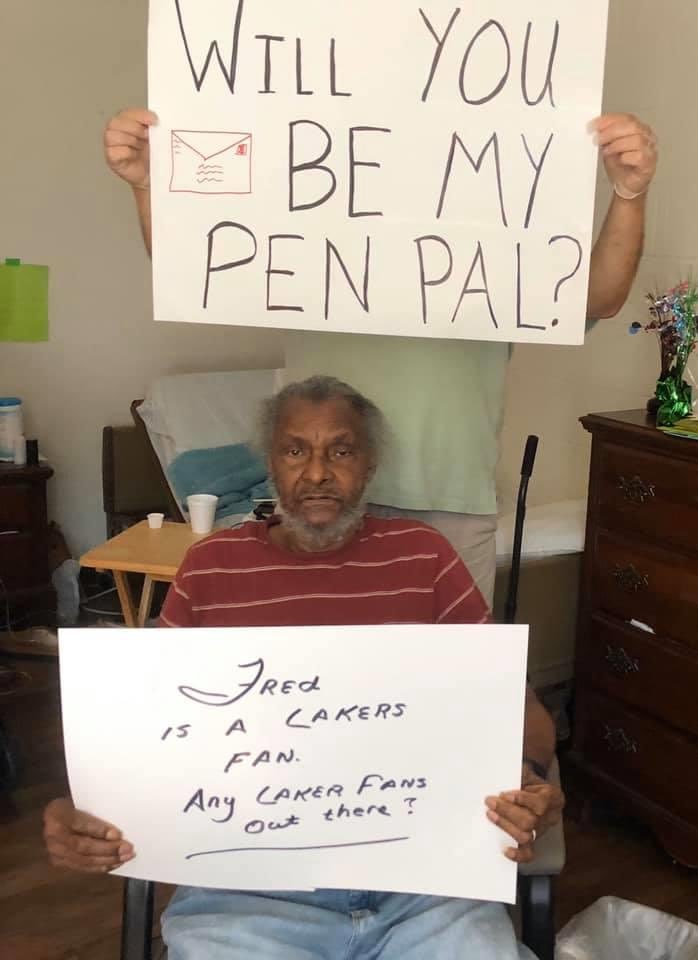 WILL YOU
BE MY
PEN PAL?
FREd
IS A LAKERS
FAN.
Any LAKER FANS
Out there?